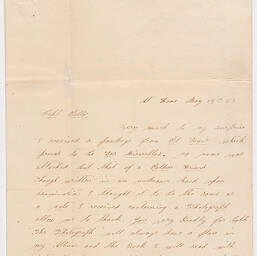 At Home May 19th 63
Capt
Very much to my surprise
I received a package from
proved to be Les Miserables. no name was
attached but that of a
though written in an unknown hand after
examination I thought it to be the same as
a note I received containing a Photograph
allow me to thank You very kindly for both
The Photograph will always have a place in
my Album and the Book I will read with